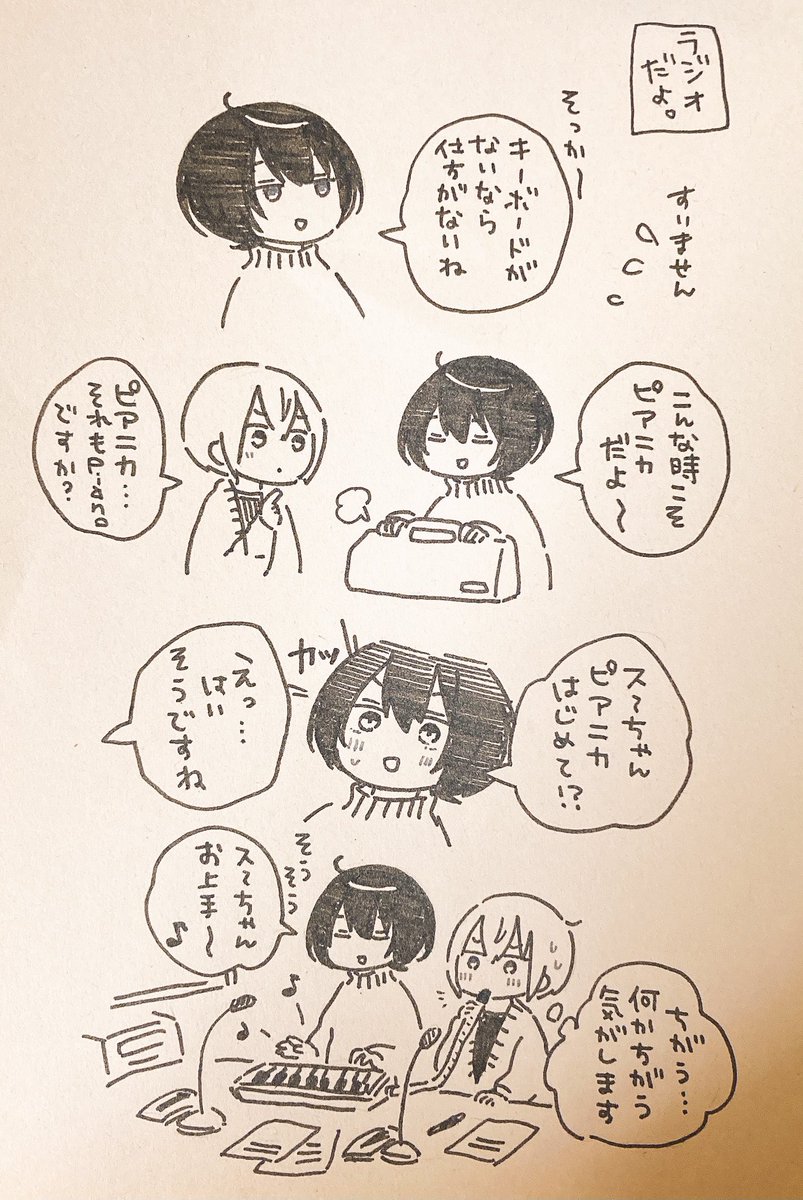 ラジオ
だよ。
すいません
そっか〜
キーボードが
ないなら
仕方がないね
こんな時こそ
ピアニカ
だよ〜
ピアニカ…
それもPiano
ですか?
ス〜ちゃん
ピアニカ
はじめて!?
カッ
えっ…
はい
そうですね
そうそう
ス〜ちゃん
お上手〜♪
ちがう…
何かちがう
気がします